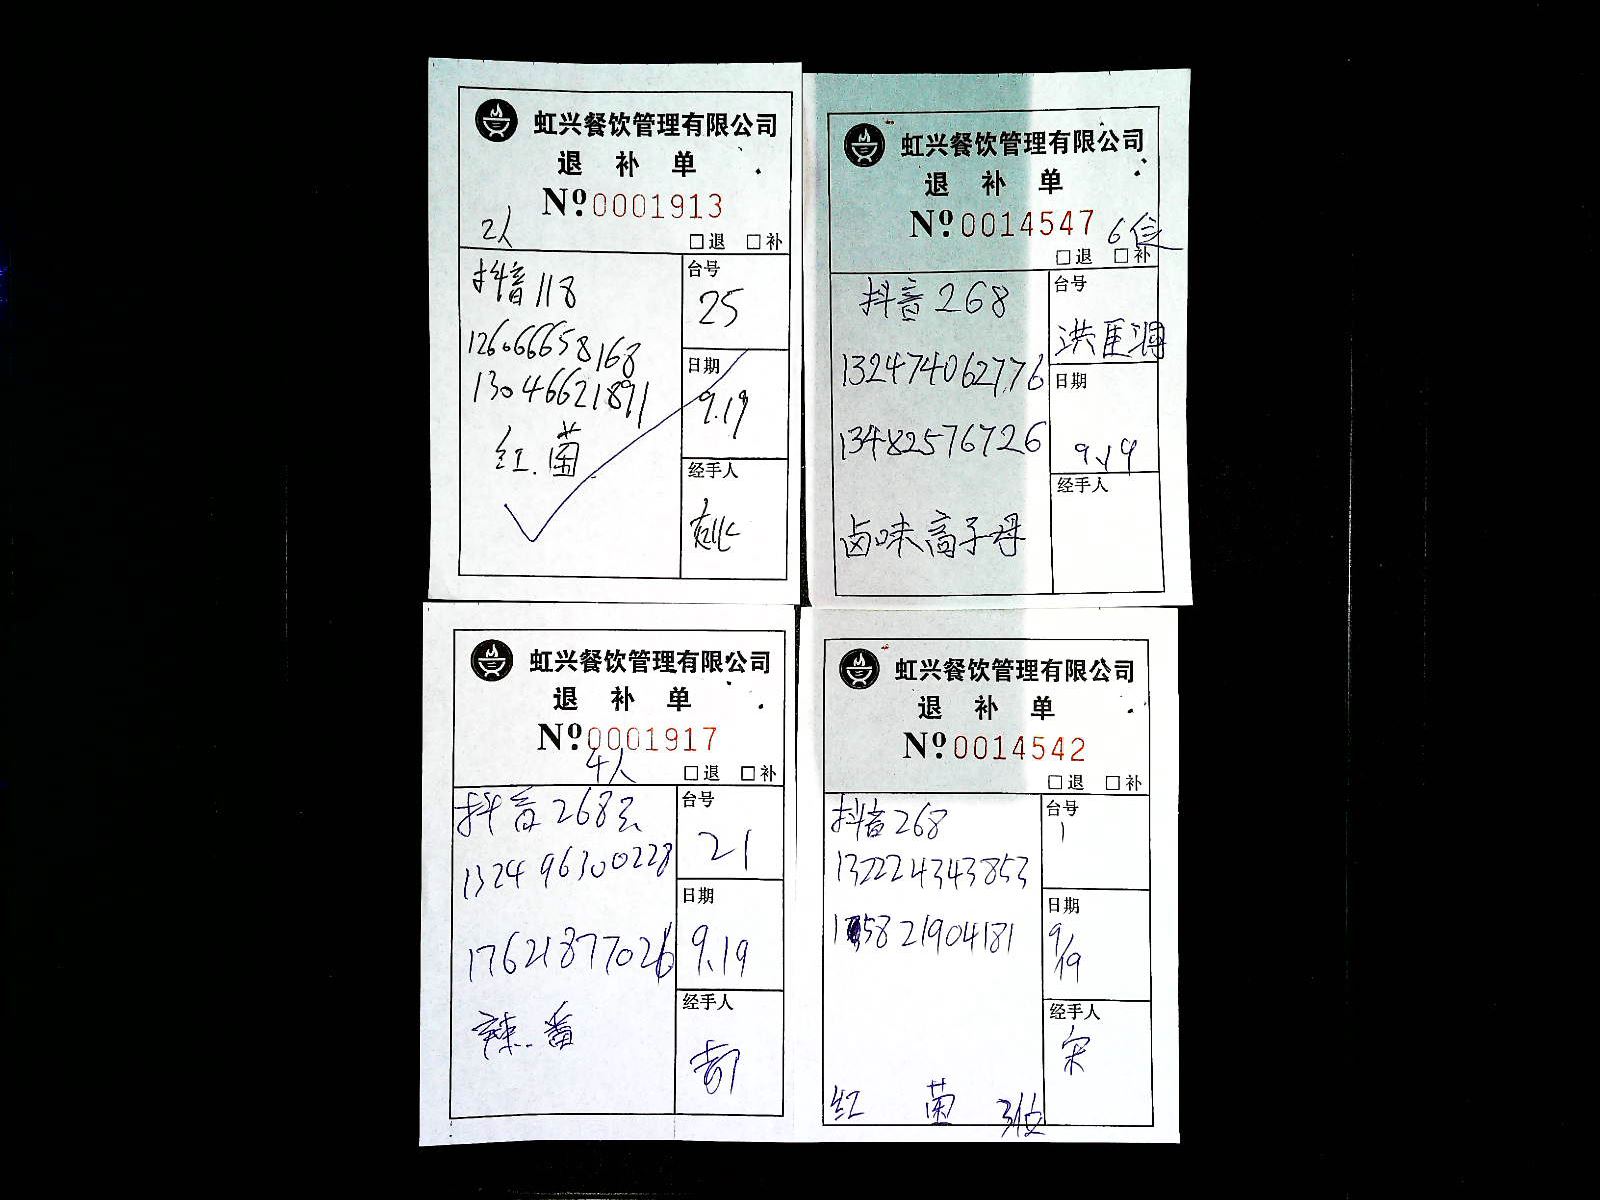 虹兴餐饮管理有限公司
退 补 单
Nº 0001913
2人
□退 □补
抖音118
126066658168
13046621891
红.菌
台号
25
日期
9.19
经手人
虹兴餐饮管理有限公司
退 补 单
Nº 0014547
6位
□退 □补
抖音268
1324740627776
13482576726
卤味高子母
台号
洪匡润
日期
9.19
经手人
虹兴餐饮管理有限公司
退 补 单
Nº 0001917
4人
□退 □补
抖音268
132496300228
17621877026
辣.番
台号
21
日期
9.19
经手人
虹兴餐饮管理有限公司
退 补 单
Nº 0014542
□退 □补
抖音268
132224343853
15821904181
红 菌 3位
台号
1
日期
9/19
经手人
宋